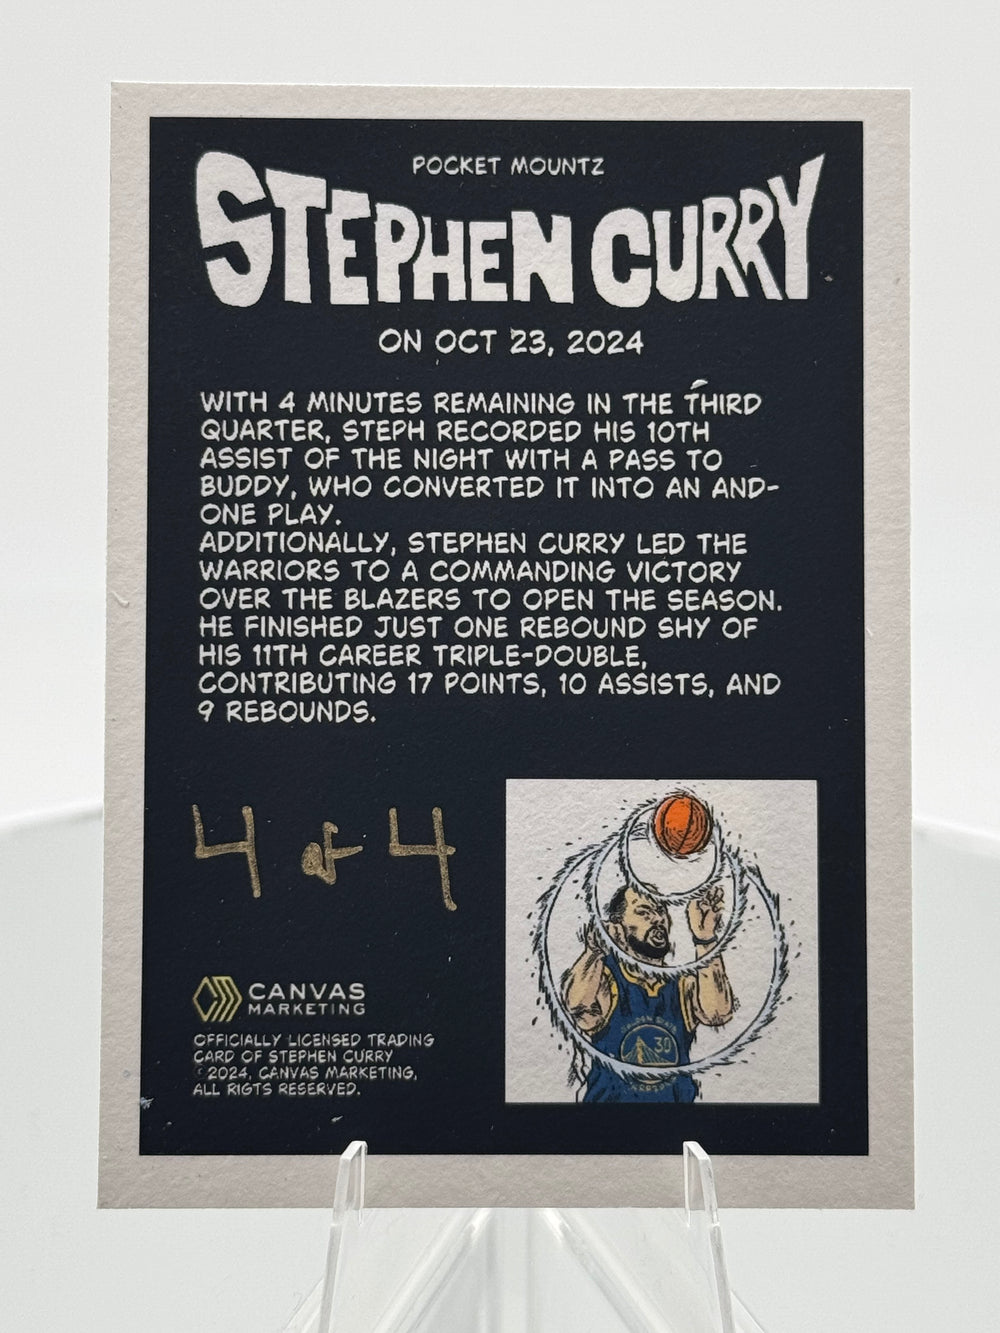 POCKET MOUNTZ
STEPHEN CURRY
ON OCT 23, 2024
WITH 4 MINUTES REMAINING IN THE THIRD
QUARTER, STEPH RECORDED HIS 10TH
ASSIST OF THE NIGHT WITH A PASS TO
BUDDY, WHO CONVERTED IT INTO AN AND-
ONE PLAY.
ADDITIONALLY, STEPHEN CURRY LED THE
WARRIORS TO A COMMANDING VICTORY
OVER THE BLAZERS TO OPEN THE SEASON.
HE FINISHED JUST ONE REBOUND SHY OF
HIS 11TH CAREER TRIPLE-DOUBLE,
CONTRIBUTING 17 POINTS, 10 ASSISTS, AND
9 REBOUNDS.
4 of 4
CANVAS
MARKETING
OFFICIALLY LICENSED TRADING
CARD OF STEPHEN CURRY
©2024, CANVAS MARKETING,
ALL RIGTS RESERVED.
GOLDEN STATE
30
WARRIORS